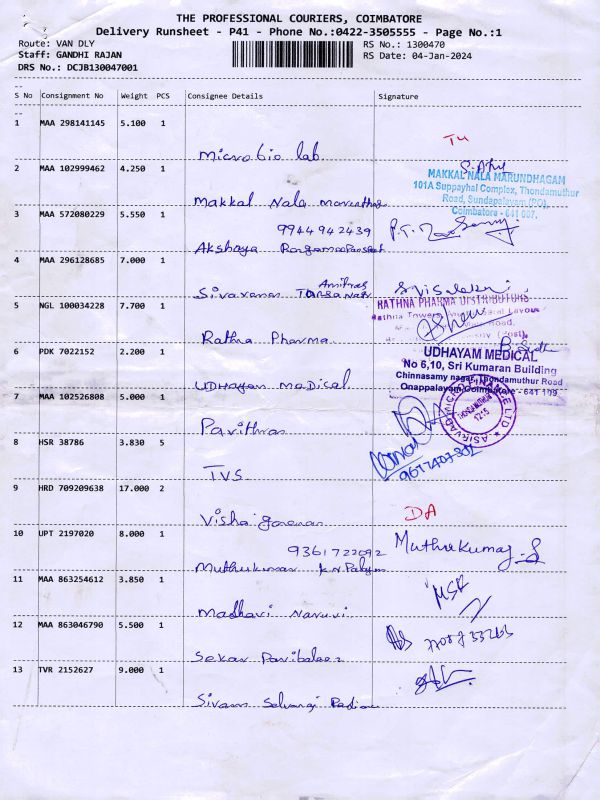 THE PROFESSIONAL COURIERS, COIMBATORE
Delivery Runsheet - P41 - Phone No.:0422-3505555 - Page No.:1
Route: VAN DLY RS No.: 1300470
Staff: GANDHI RAJAN RS Date: 04-Jan-2024
DRS No.: DCJB130047001
S No Consignment No Weight PCS Consignee Details Signature
1 MAA 298141145 5.100 1
Micro bio lab TU
2 MAA 102999462 4.250 1
MAKKAL NALA MARUNDHAGAM
101A Suppayhal Complex, Thondamuthur
Road, Sundapalayam (PO),
Coimbatore - 641 007.
Makkal Nala
3 MAA 572080229 5.550 1
9944942439
Akshaya
4 MAA 296128685 7.000 1
5 NGL 100034228 7.700 1
RATHNA PHARMA DISTRIBUTORS
Rathna Towers
Rathna Pharma
6 PDK 7022152 2.200 1
UDHAYAM MEDICAL
No 6,10, Sri Kumaran Building
Chinnasamy nagar, Thondamuthur Road
Onappalayam, Coimbatore - 641 109.
UDHAYAM MEDICAL
7 MAA 102526808 5.000 1
8 HSR 38786 3.830 5
TVS
9 HRD 709209638 17.000 2
DA
10 UPT 2197020 8.000 1
9361722092 Muthukumar S
Muthukumar K.N. Palym
11 MAA 863254612 3.850 1
Madhavi
12 MAA 863046790 5.500 1
Sekar
13 TVR 2152627 9.000 1
Sivam